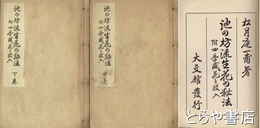 松月庵一甫著
池の坊流生花の秘法
附四季盛花と投入
大文館發行
池の坊流生花の秘法
附四季盛花と投入
池の坊流生花の秘法
附四季盛花と投入
下巻
とらや書店